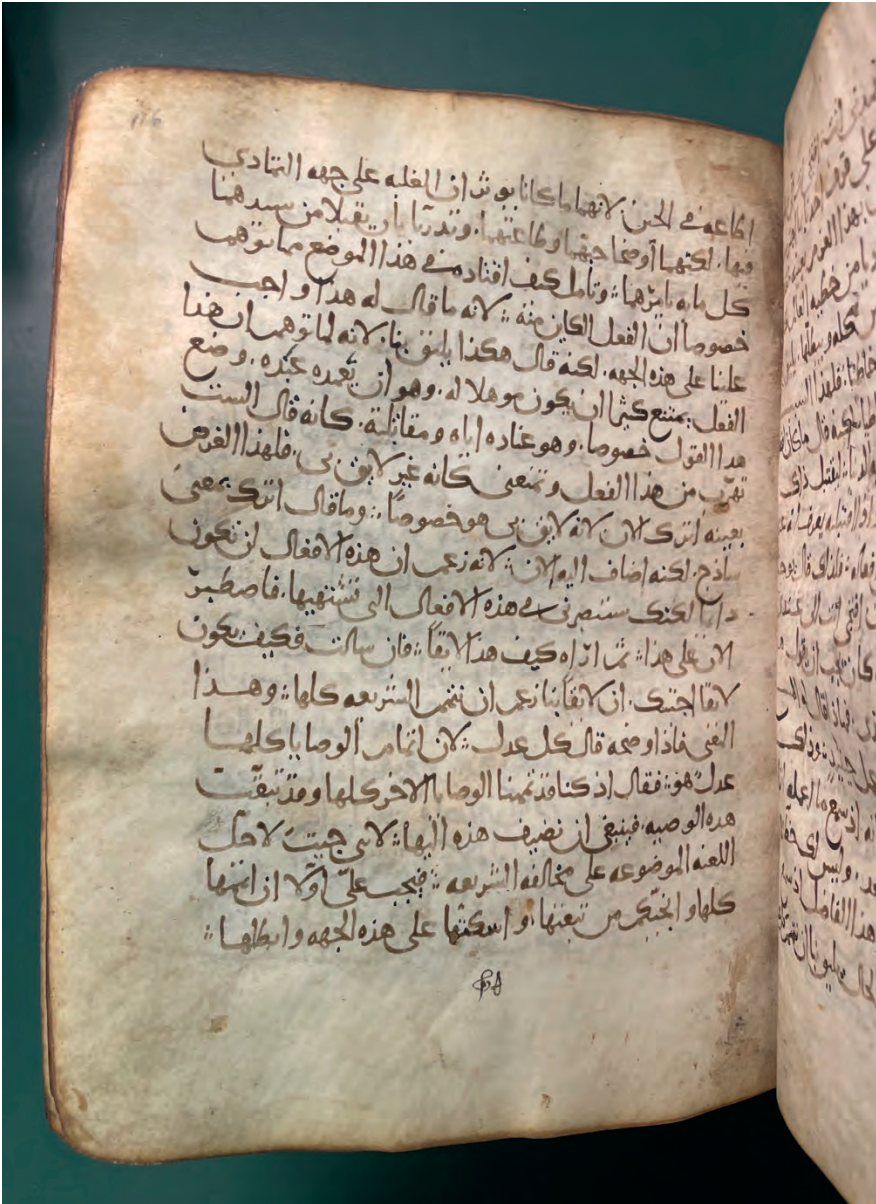 116
اطاعه في الحين. لانهما ما كانا يوثران الغلبه على جهه التمادي
فيها. لكنهما أوضحا حبهما وطاعتهما. وتدربا بأن يقبلا من سيدهما
كل ما يه يامرهما؛ وتامل كيف اقتاده في هذا الموضع مما توهم
خصوصا ان الفعل الكاين منه؛ لانه ما قال له هذا واجب
علينا على هذه الجهه. لكنه قال هكذا يليق بنا. لانه لما توهم ان هذا
الفعل. يمتنع كثيرا ان يكون موهلا له. وهو ان يعمده عبده. وضع
هدا القول خصوصا. وهو عناده اياه ومقابلته. كانه قال الست
تهرب من هذا الفعل وتمتعني كانه غير لايق بي. فلهذا الغرض
بعينه اترك الان لانه لايق بي هو خصوصًا؛ وما قال اترك بمعنى
ساذج. لكنه اضاف اليه الان؛ لانه زعم ان هذه الافعال لن تكون
دايما لكنك ستبصرني في هذه الافعال التي تشتهيها. فاصطبر
الان على هذا؛ ثم اراه كيف هذا لايقًا؛ فان سالت فكيف يكون
لايقا اجبتك. ان لايقا بنا زعم ان نتمم الشريعه كلها؛ وهـذا
المعنى فاذ اوضحه قال كل عدل؛ لان اتمام الوصايا كلهـا
عدل هو؛ فقال اذ كنا قد تممنا الوصايا الاخر كلها وقد تبقت
هده الوصيه. فينبغي ان نضيف هذه اليها؛ لانني جيت لاحل
اللعنه الموضوعه على مخالفه الشريعه؛ فيجب عليّ اولا ان اتممها
كلها و من تبعتها. و اسكتها على هذه الجهه وابطلهـا؛